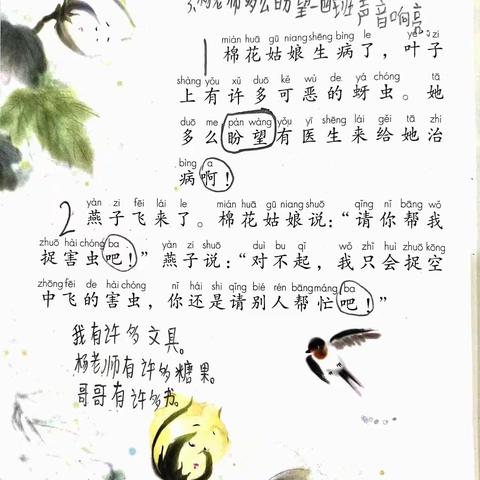 杨老师多么盼望一(1)班声音响亮
1
mián huā gū niang shēng bìng le yè zi
棉花姑娘生病了，叶子
shàng yǒu xǔ duō kě wù de yá chóng tā
上有许多可恶的蚜虫。她
duō me pàn wàng yǒu yī shēng lái gěi tā zhì
多么盼望有医生来给她治
bìng a
病啊！
yàn zi fēi lái le mián huā gū niang shuō qǐng nǐ bāng wǒ
2 燕子飞来了。棉花姑娘说：“请你帮我
zhuō hài chóng ba yàn zi shuō duì bu qǐ wǒ zhǐ huì zhuō kōng
捉害虫吧！”燕子说：“对不起，我只会捉空
zhōng fēi de hài chóng nǐ hái shi qǐng bié rén bāng máng ba
中飞的害虫，你还是请别人帮忙吧！”
我有许多文具。
杨老师有许多糖果。
哥哥有许多书。